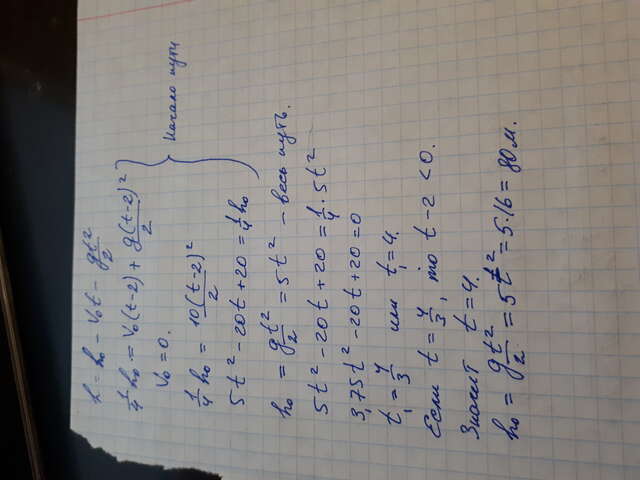 h = h₀ - V₀t - gt²/2
1/4 h₀ = V₀(t-2) + g(t-2)²/2
V₀ = 0.
1/4 h₀ = 10(t-2)²/2
5t² - 20t + 20 = 1/4 h₀
Начало пути
h₀ = gt²/2 = 5t² - весь путь.
5t² - 20t + 20 = 1/4 · 5t²
3,75t² - 20t + 20 = 0
t₁ = 4/3 или t₁ = 4.
Если t = 4/3, то t - 2 < 0.
Значит t = 4.
h₀ = gt²/2 = 5t² = 5·16 = 80 м.